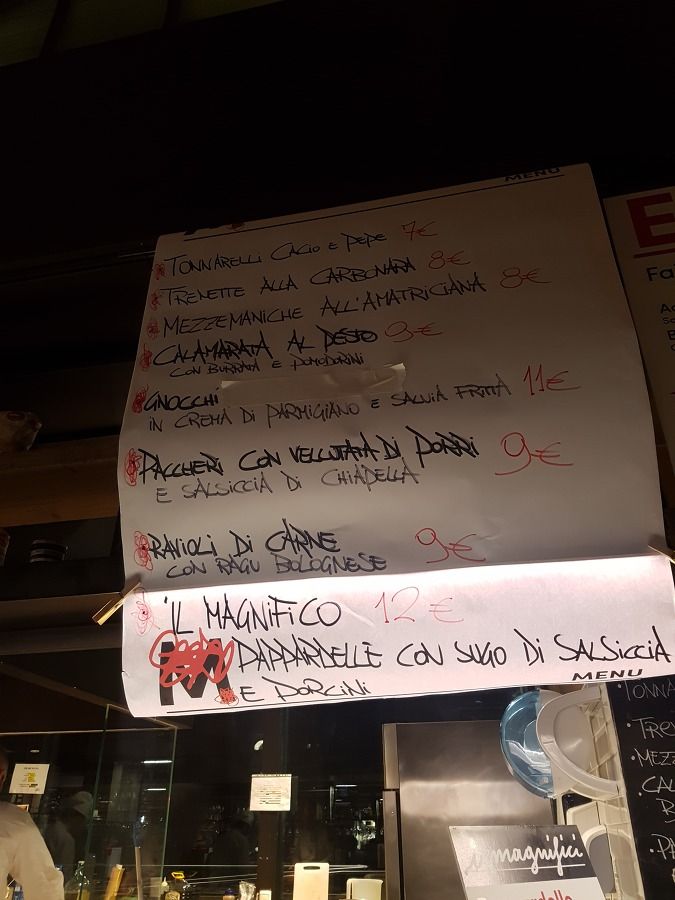 MENU
TONNARELLI CACIO E PEPE 7€
TRENETTE ALLA CARBONARA 8€
MEZZEMANICHE ALL'AMATRICIANA 8€
CALAMARATA AL PESTO 9€
CON BURRATA E POMODORINI
GNOCCHI
IN CREMA DI PARMIGIANO E SALVIA FRITTA 11€
PACCHERI CON VELLUTATA DI PORRI 9€
E SALSICCIA DI CHIADELLA
RAVIOLI DI CARNE 9€
CON RAGU BOLOGNESE
IL MAGNIFICO 12€
M PAPPARDELLE CON SUGO DI SALSICCIA
MENU
E PORCINI
E
Fa
TONNA
TREN
MEZZ
CAL
B
PA
i magnifici